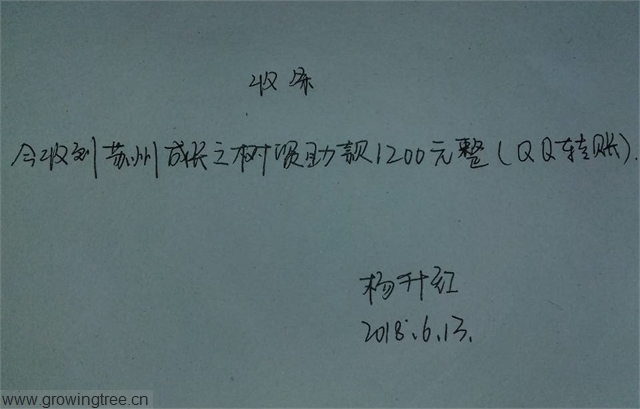 收条
今收到苏州成长之树资助款1200元整(QQ转账).
杨升红
2018.6.13.
www.growingtree.cn